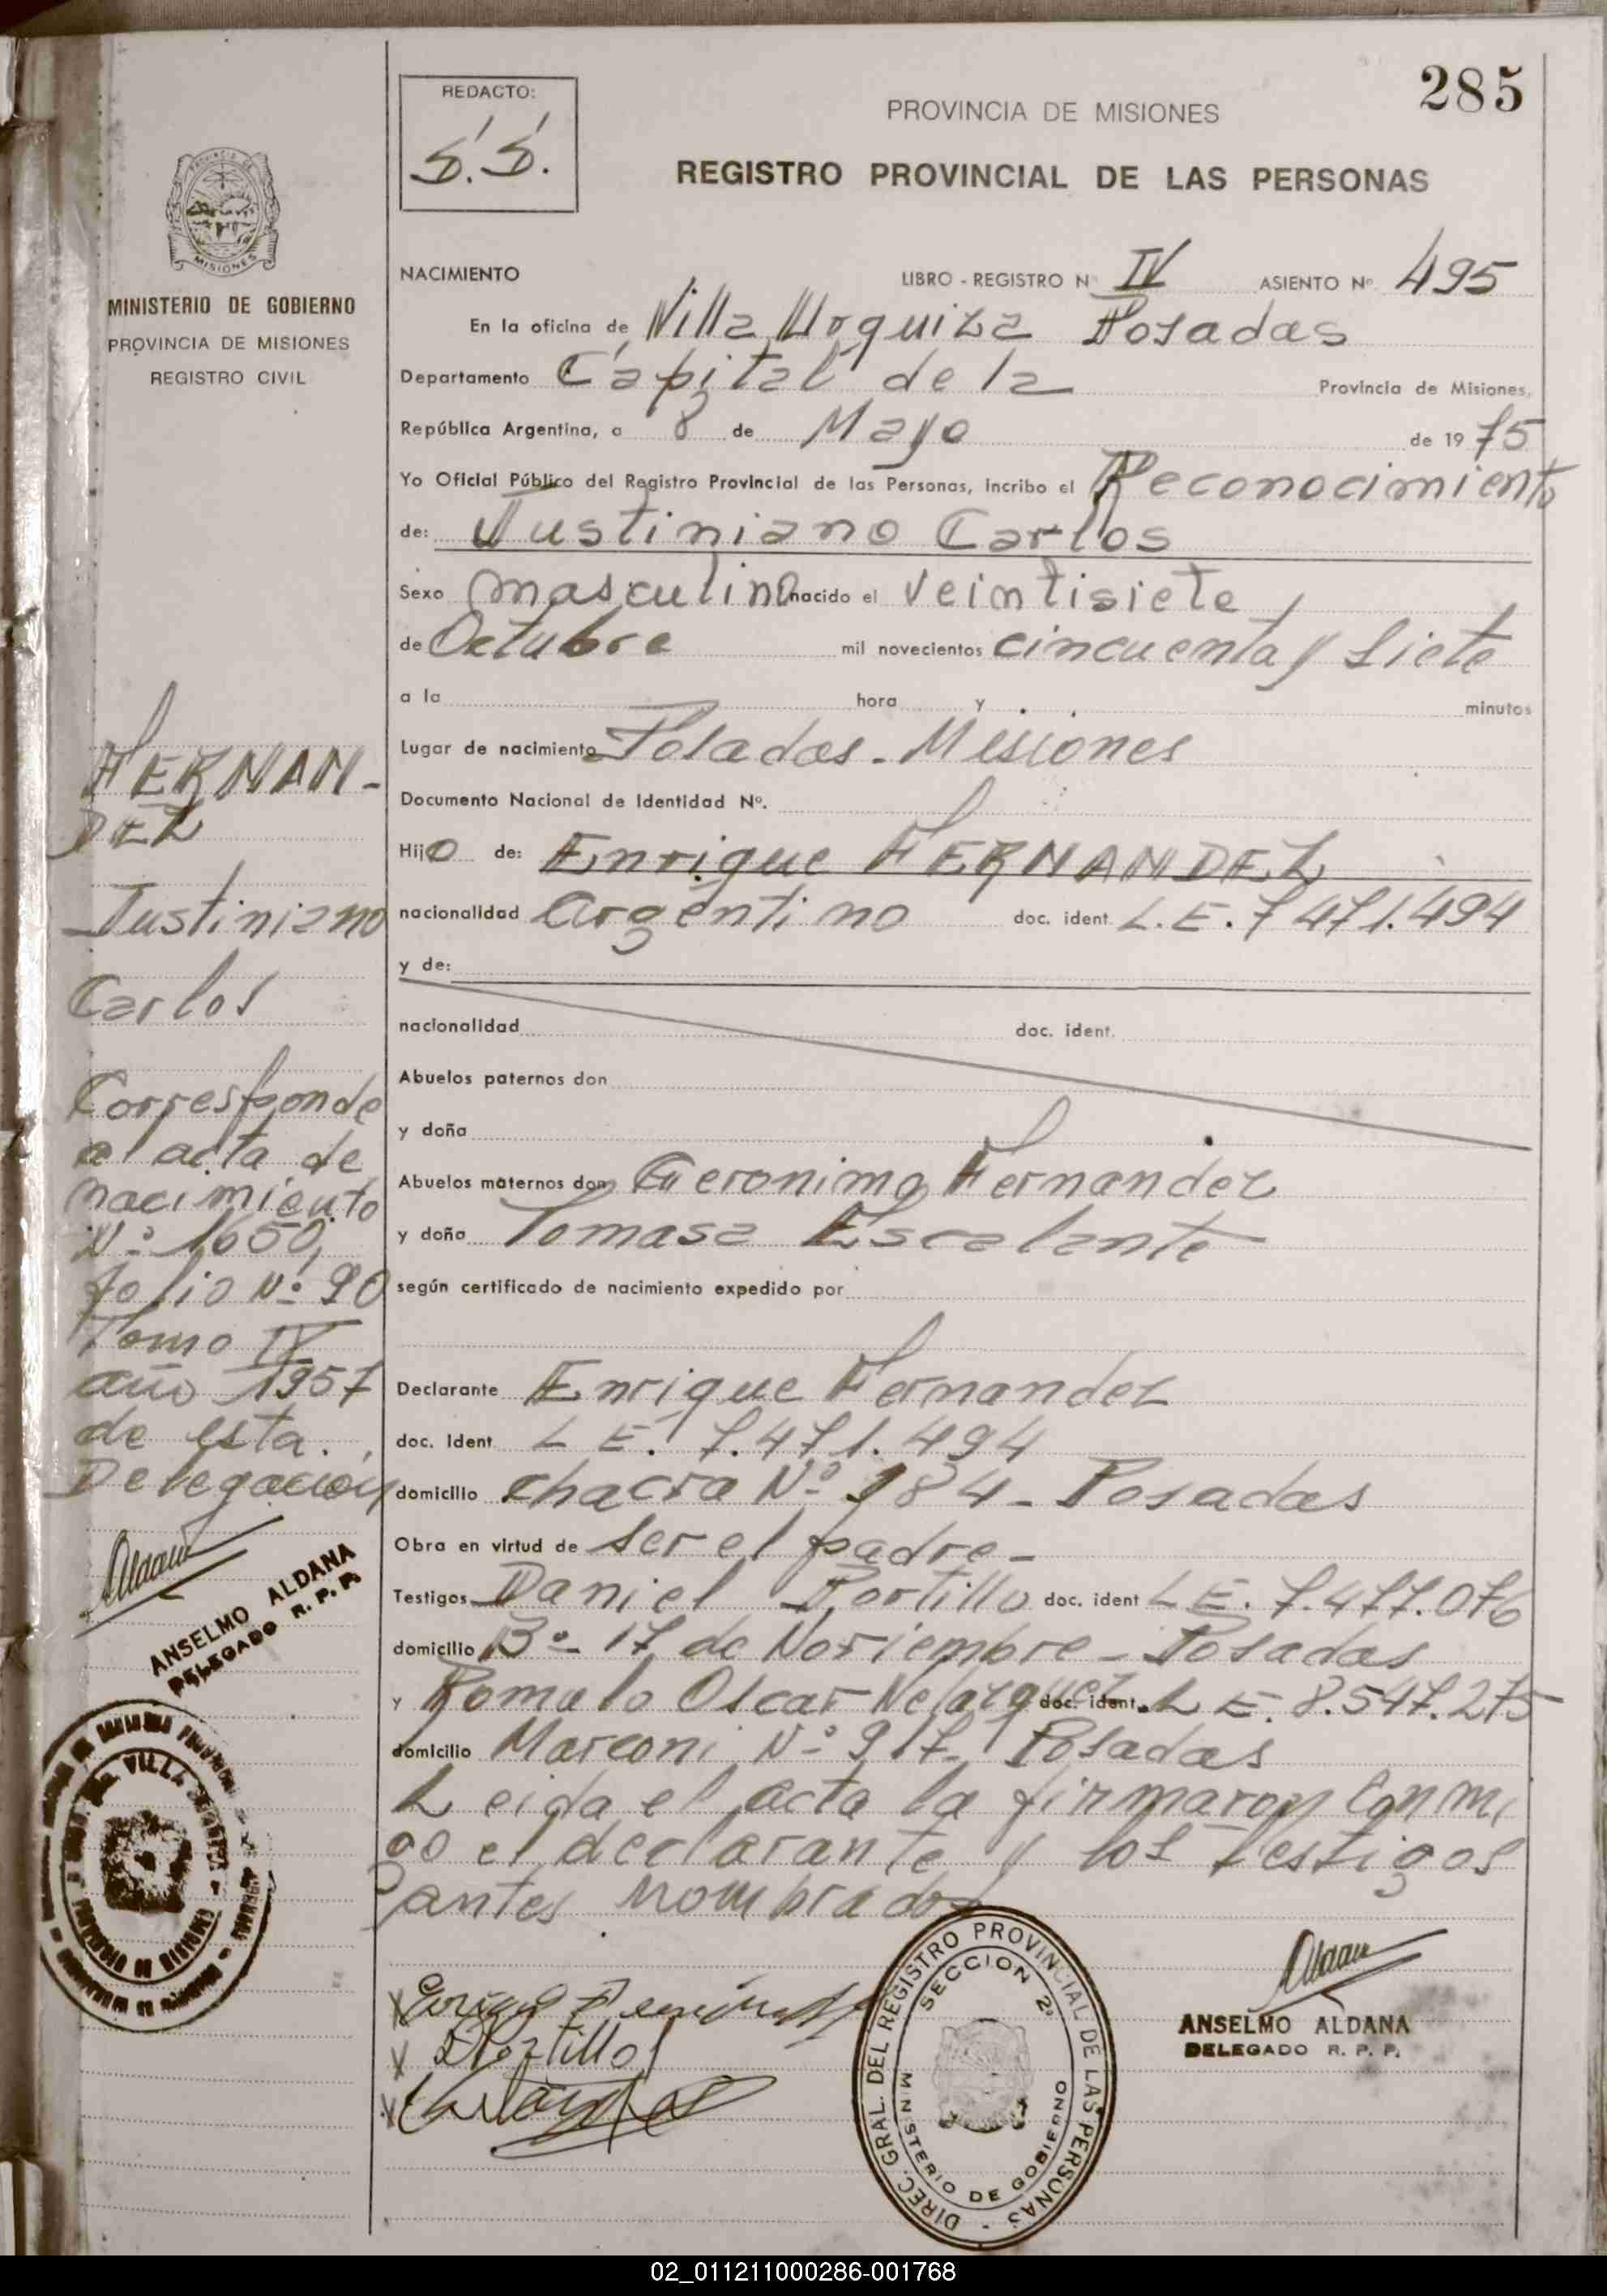 285
REDACTO:
S.S.
PROVINCIA DE MISIONES
REGISTRO PROVINCIAL DE LAS PERSONAS
MISIONES
MINISTERIO DE GOBIERNO
PROVINCIA DE MISIONES
REGISTRO CIVIL
NACIMIENTO LIBRO - REGISTRO Nº IV ASIENTO Nº 495
En la oficina de Villa Urquiza Posadas
Departamento Capital de la Provincia de Misiones,
República Argentina, a 8 de Mayo de 1975
Yo Oficial Público del Registro Provincial de las Personas, incribo el Reconocimiento
de: Justiniano Carlos
Sexo masculino nacido el veintisiete
de Octubre mil novecientos cincuenta y siete
a la hora y minutos
Lugar de nacimiento Posadas - Misiones
Documento Nacional de Identidad Nº.
Hijo de: Enrique FERNANDEZ
nacionalidad argentino doc. ident. L.E. 7471.494
y de:
nacionalidad doc. ident.
Abuelos paternos don
y doña
Abuelos maternos don Geronimo Fernandez
y doña Tomasa Escalante
según certificado de nacimiento expedido por
Declarante Enrique Fernandez
doc. Ident L E. 7.471.494
domicilio chacra Nº 184 - Posadas
Obra en virtud de ser el padre -
Testigos Daniel Portillo doc. ident L E. 7.477.076
domicilio Bº - 17 de Noviembre - Posadas
y Romulo Oscar doc. ident. L E. 8.547.275
domicilio Marconi Nº 917 - Posadas
Leida el acta la firmaron conmi
go el declarante y los testigos
antes nombrados
FERNAN-
DEZ
Justiniano
Carlos
Corresponde
al acta de
nacimiento
Nº 1650,
folio Nº 90
Tomo IV
año 1957
de esta
Delegación
ANSELMO ALDANA
DELEGADO R. P. P.
VILLA
DPortillo
DIREC. GRAL. DEL REGISTRO PROVINCIAL DE LAS PERSONAS -
SECCION 2ª
MINISTERIO DE GOBIERNO
ANSELMO ALDANA
DELEGADO R. P. P.
02_011211000286-001768